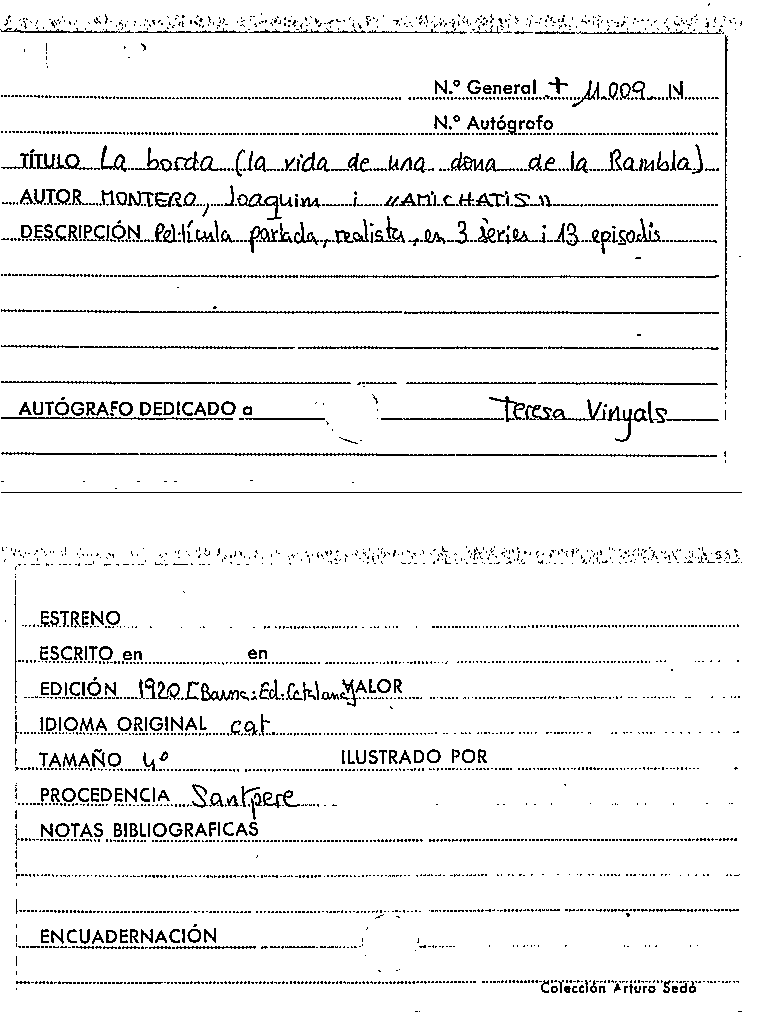 N.º General + 11.009 N
N.º Autógrafo
TÍTULO La borda (la vida de una dona de la Rambla)
AUTOR MONTERO, Joaquim i "AMICHATIS"
DESCRIPCIÓN Pel·lícula parlada, realista, en 3 sèries i 13 episodis
AUTÓGRAFO DEDICADO a Teresa Vinyals
ESTRENO
ESCRITO en en
EDICIÓN 1920 [Barna: Ed. Catalana] VALOR
IDIOMA ORIGINAL cat.
TAMAÑO 4º ILUSTRADO POR
PROCEDENCIA Santpere
NOTAS BIBLIOGRAFICAS
ENCUADERNACIÓN
Colección Arturo Sedó